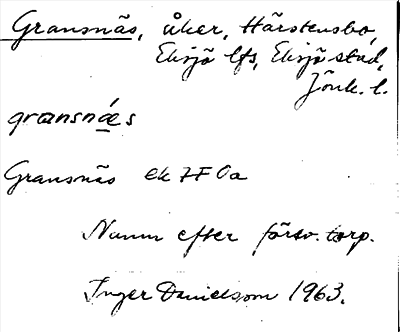 Gransnäs, åker, Härstensbo,
Eksjö lfs, Eksjö stad,
Jönk. l.
gransnæ´s
Gransnäs ek 7F 0a
Namn efter försv. torp.
Inger Danielsson 1963.